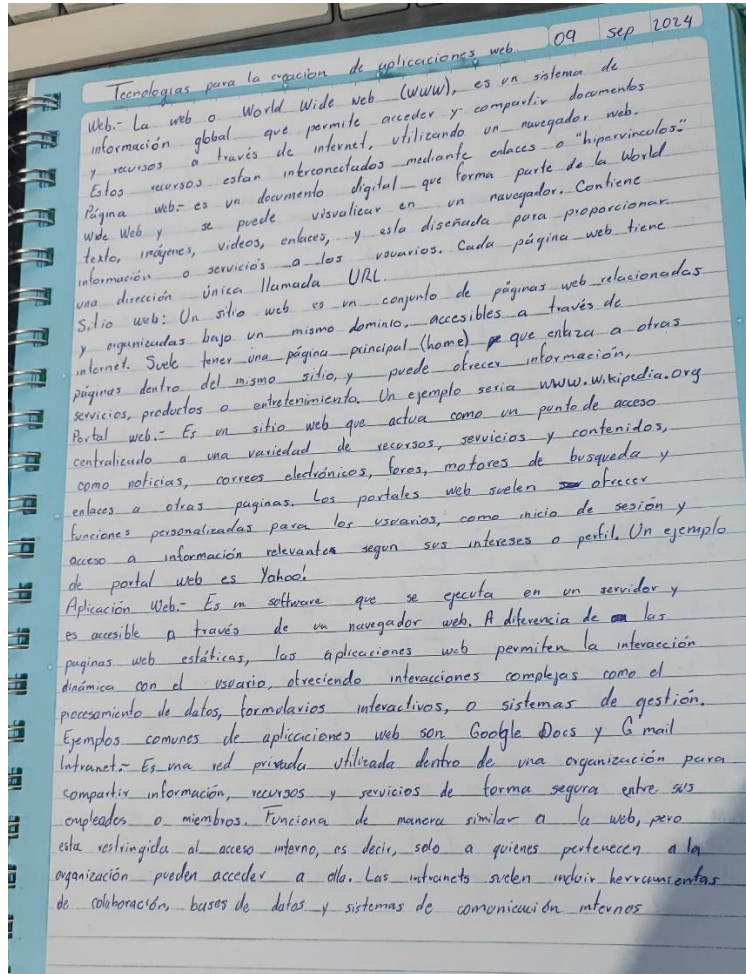 09 sep 2024
Tecnologías para la creacion de aplicaciones web.
Web.- La web o World Wide Web (WWW), es un sistema de
información global que permite acceder y compartir documentos
y recursos a través de internet, utilizando un navegador web.
Estos recursos estan interconectados mediante enlaces o "hipervinculos."
Página web:- es un documento digital que forma parte de la World
Wide Web y se puede visualizar en un navegador. Contiene
texto, imágenes, videos, enlaces, y esta diseñada para proporcionar
información o servicios a los usuarios. Cada página web tiene
una dirección única llamada URL.
Sitio web: Un sitio web es un conjunto de páginas web relacionadas
y organizadas bajo un mismo dominio, accesibles a través de
internet. Suele tener una página principal (home) que enlaza a otras
páginas dentro del mismo sitio, y puede ofrecer información,
servicios, productos o entretenimiento. Un ejemplo seria www.wikipedia.org
Portal web.- Es un sitio web que actua como un punto de acceso
centralizado a una variedad de recursos, servicios y contenidos,
como noticias, correos electrónicos, foros, motores de busqueda y
enlaces a otras paginas. Los portales web suelen ofrecer
funciones personalizadas para los usuarios, como inicio de sesión y
acceso a información relevante segun sus intereses o perfil. Un ejemplo
de portal web es Yahoo!
Aplicación Web.- Es un software que se ejecuta en un servidor y
es accesible a través de un navegador web. A diferencia de las
paginas web estáticas, las aplicaciones web permiten la interacción
dinámica con el usuario, ofreciendo interacciones complejas como el
procesamiento de datos, formularios interactivos, o sistemas de gestión.
Ejemplos comunes de aplicaciones web son Google Docs y Gmail
Intranet.- Es una red privada utilizada dentro de una organización para
compartir información, recursos y servicios de forma segura entre sus
empleados o miembros. Funciona de manera similar a la web, pero
esta restringida al acceso interno, es decir, solo a quienes pertenecen a la
organización pueden acceder a ella. Las intranets suelen incluir herramientas
de colaboración, bases de datos y sistemas de comunicación internos